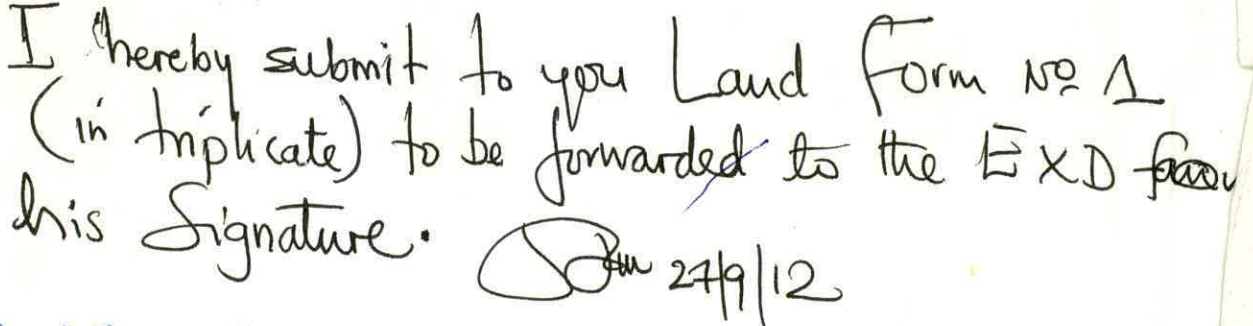 I hereby submit to you Land Form Nº 1
(in triplicate) to be forwarded to the EXD for
his Signature.
27/9/12